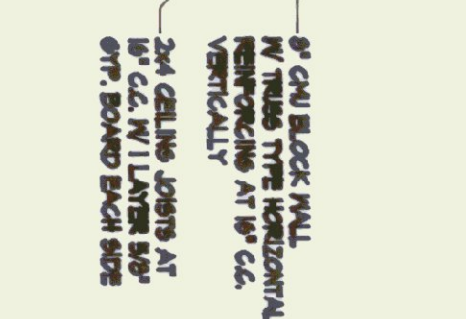 8" CMU BLOCK WALL
W/ TRUSS TYPE HORIZONTAL
REINFORCING AT 16" C.C.
VERTICALLY
2x4 CEILING JOISTS AT
16" C.C. W/ 1 LAYER 5/8"
GYP. BOARD EACH SIDE